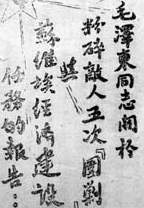 毛澤東同志關於
粉碎敵人五次『圍剿』
與
蘇維埃經濟建設
任務的報告：